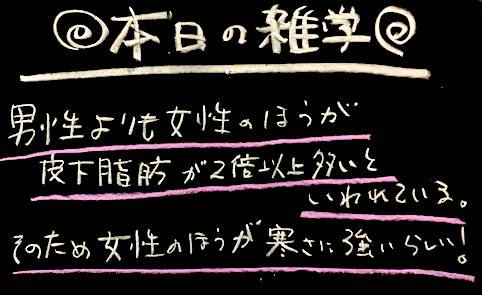 本日の雑学
男性よりも女性のほうが
皮下脂肪が2倍以上多いと
いわれている。
そのため女性のほうが寒さに強いらしい!